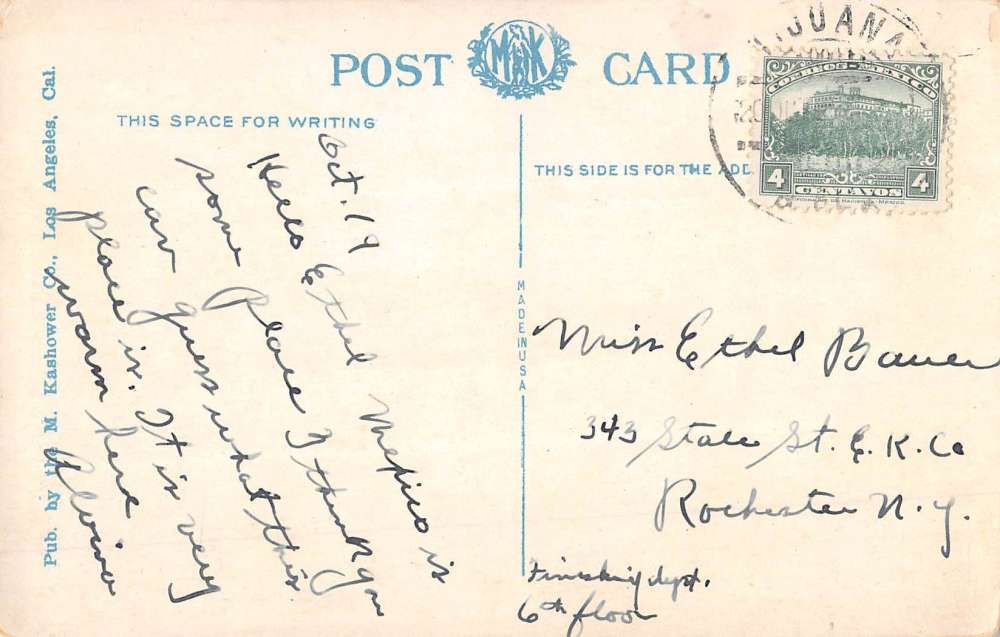 Pub. by the M. Kashower Co., Los Angeles, Cal.
POST MK CARD
THIS SPACE FOR WRITING
THIS SIDE IS FOR THE ADD
MADE IN USA
TIJUANA
CORREOS MEXICO
4 CENTAVOS 4
Oct. 19
Hello Ethel Mexico is
some place I think you
can guess what this
place is. It is very
warm here
Alvina
Miss Ethel Bauer
343 State St. E. K. Co
Rochester N. Y.
Finishing dept.
6th floor